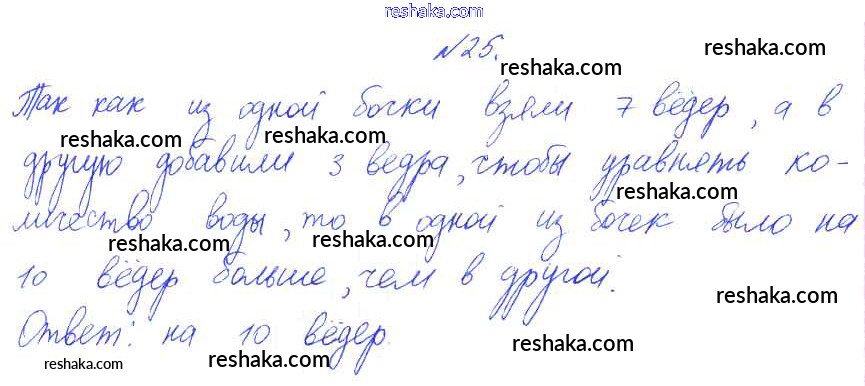 reshaka.com
№25.
reshaka.com
reshaka.com
Так как из одной бочки взяли 7 вёдер, а в
reshaka.com
reshaka.com
другую добавили 3 ведра, чтобы уравнять ко-
reshaka.com
reshaka.com
личество воды, то в одной из бочек было на
reshaka.com
reshaka.com
10 вёдер больше, чем в другой.
reshaka.com
Ответ: на 10 вёдер.
reshaka.com
reshaka.com
reshaka.com